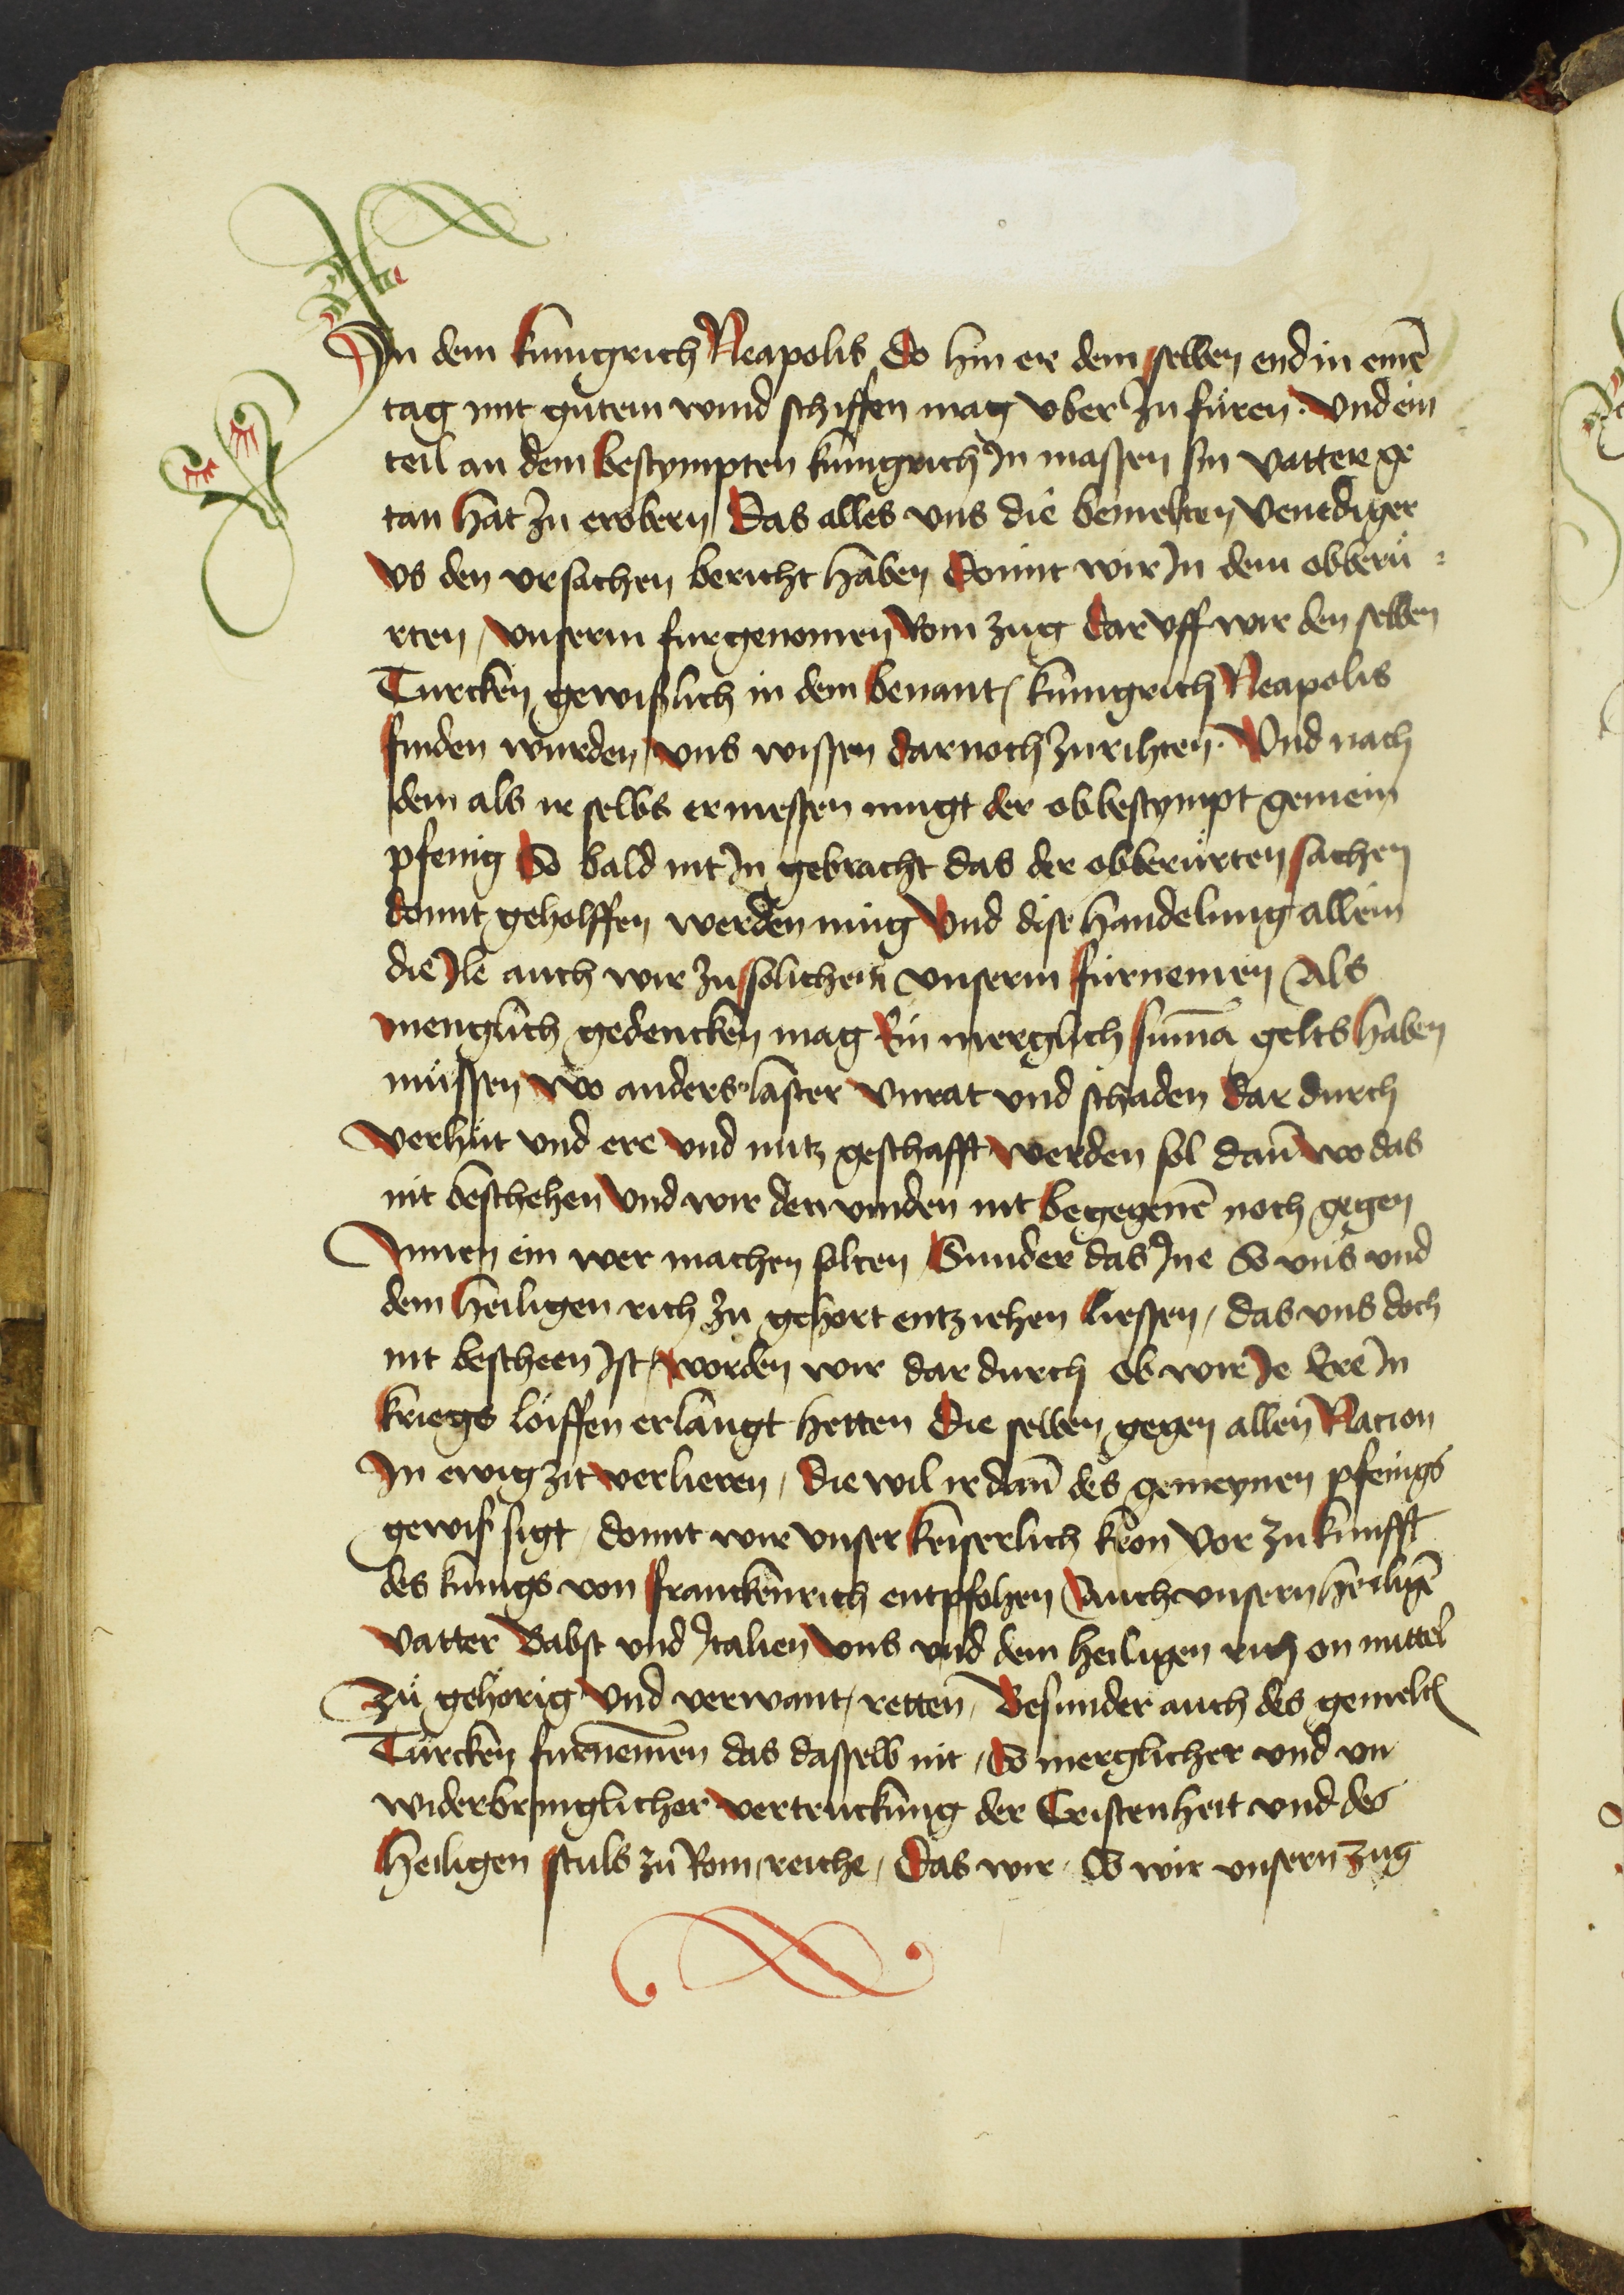 In dem kunigrich Neapolis Do hin er dem selben end in einē
tag mit gutem wind schiffen mag vber zu füren · Vnd ein
teil an dem bestympten kunigrich In massen sin vatter ge
tan hat zu erobern Das alles vns die bemelten Venediger
vs den vrsachen bericht haben Domit wir In dem obberü =
rten / vnserm furgenomen Rom zug dar vff wir den selben
Turcken gewißlich in dem benant kunigrich Neapolis
finden wurden / vns wissen darnoch zurihten · Vnd nach
dem als ir selbs ermessen mugt der obbestympt gemein
pfenig So bald nit In gebracht das der obberürten sachen
domit geholffen werden mug Vnd dise handelung allein
die Ile auch wir zu solichem vnserm fürnemen Als
menglich gedencken mag Ein merglich sumā gelts haben
müssen wo anders laster vnrat vnd schaden dar durch
verhüt vnd ere vnd nutz geschafft werden sol dañ wo das
nit beschehen Vnd wir den vinden nit begegenē noch gegen
Innen ein wer machen solten / Sunder das Ine So vns vnd
dem heiligen rich zu gehort entziehen liessen / das vns doch
nit bescheen Ist / worden wir dar durch ob wir Ie Ere In
kriegs löiffen erlangt hetten Die selben gegen allen Nacion
In ewig zit verlieren / Die wil ir dañ des gemeynen pfenigs
gewiß sigt / domit wir vnser keiserlich kron Vor zu kunfft
des kunigs von franckenrich entpfohen Auch vnsern heiligē
vatter Babst vnd Italien vns vnd dem heiligen rich on mittel
zü gehörig Vnd verwant / retten / Besunder auch des gemelt
Türcken furnemen das dasselb nit / So merglicher vnd vn
widerbringlicher vertruckung der Cristenheit vnd des
heiligen stuls zü Rom / reiche / Das wir / So wir vnsern zug